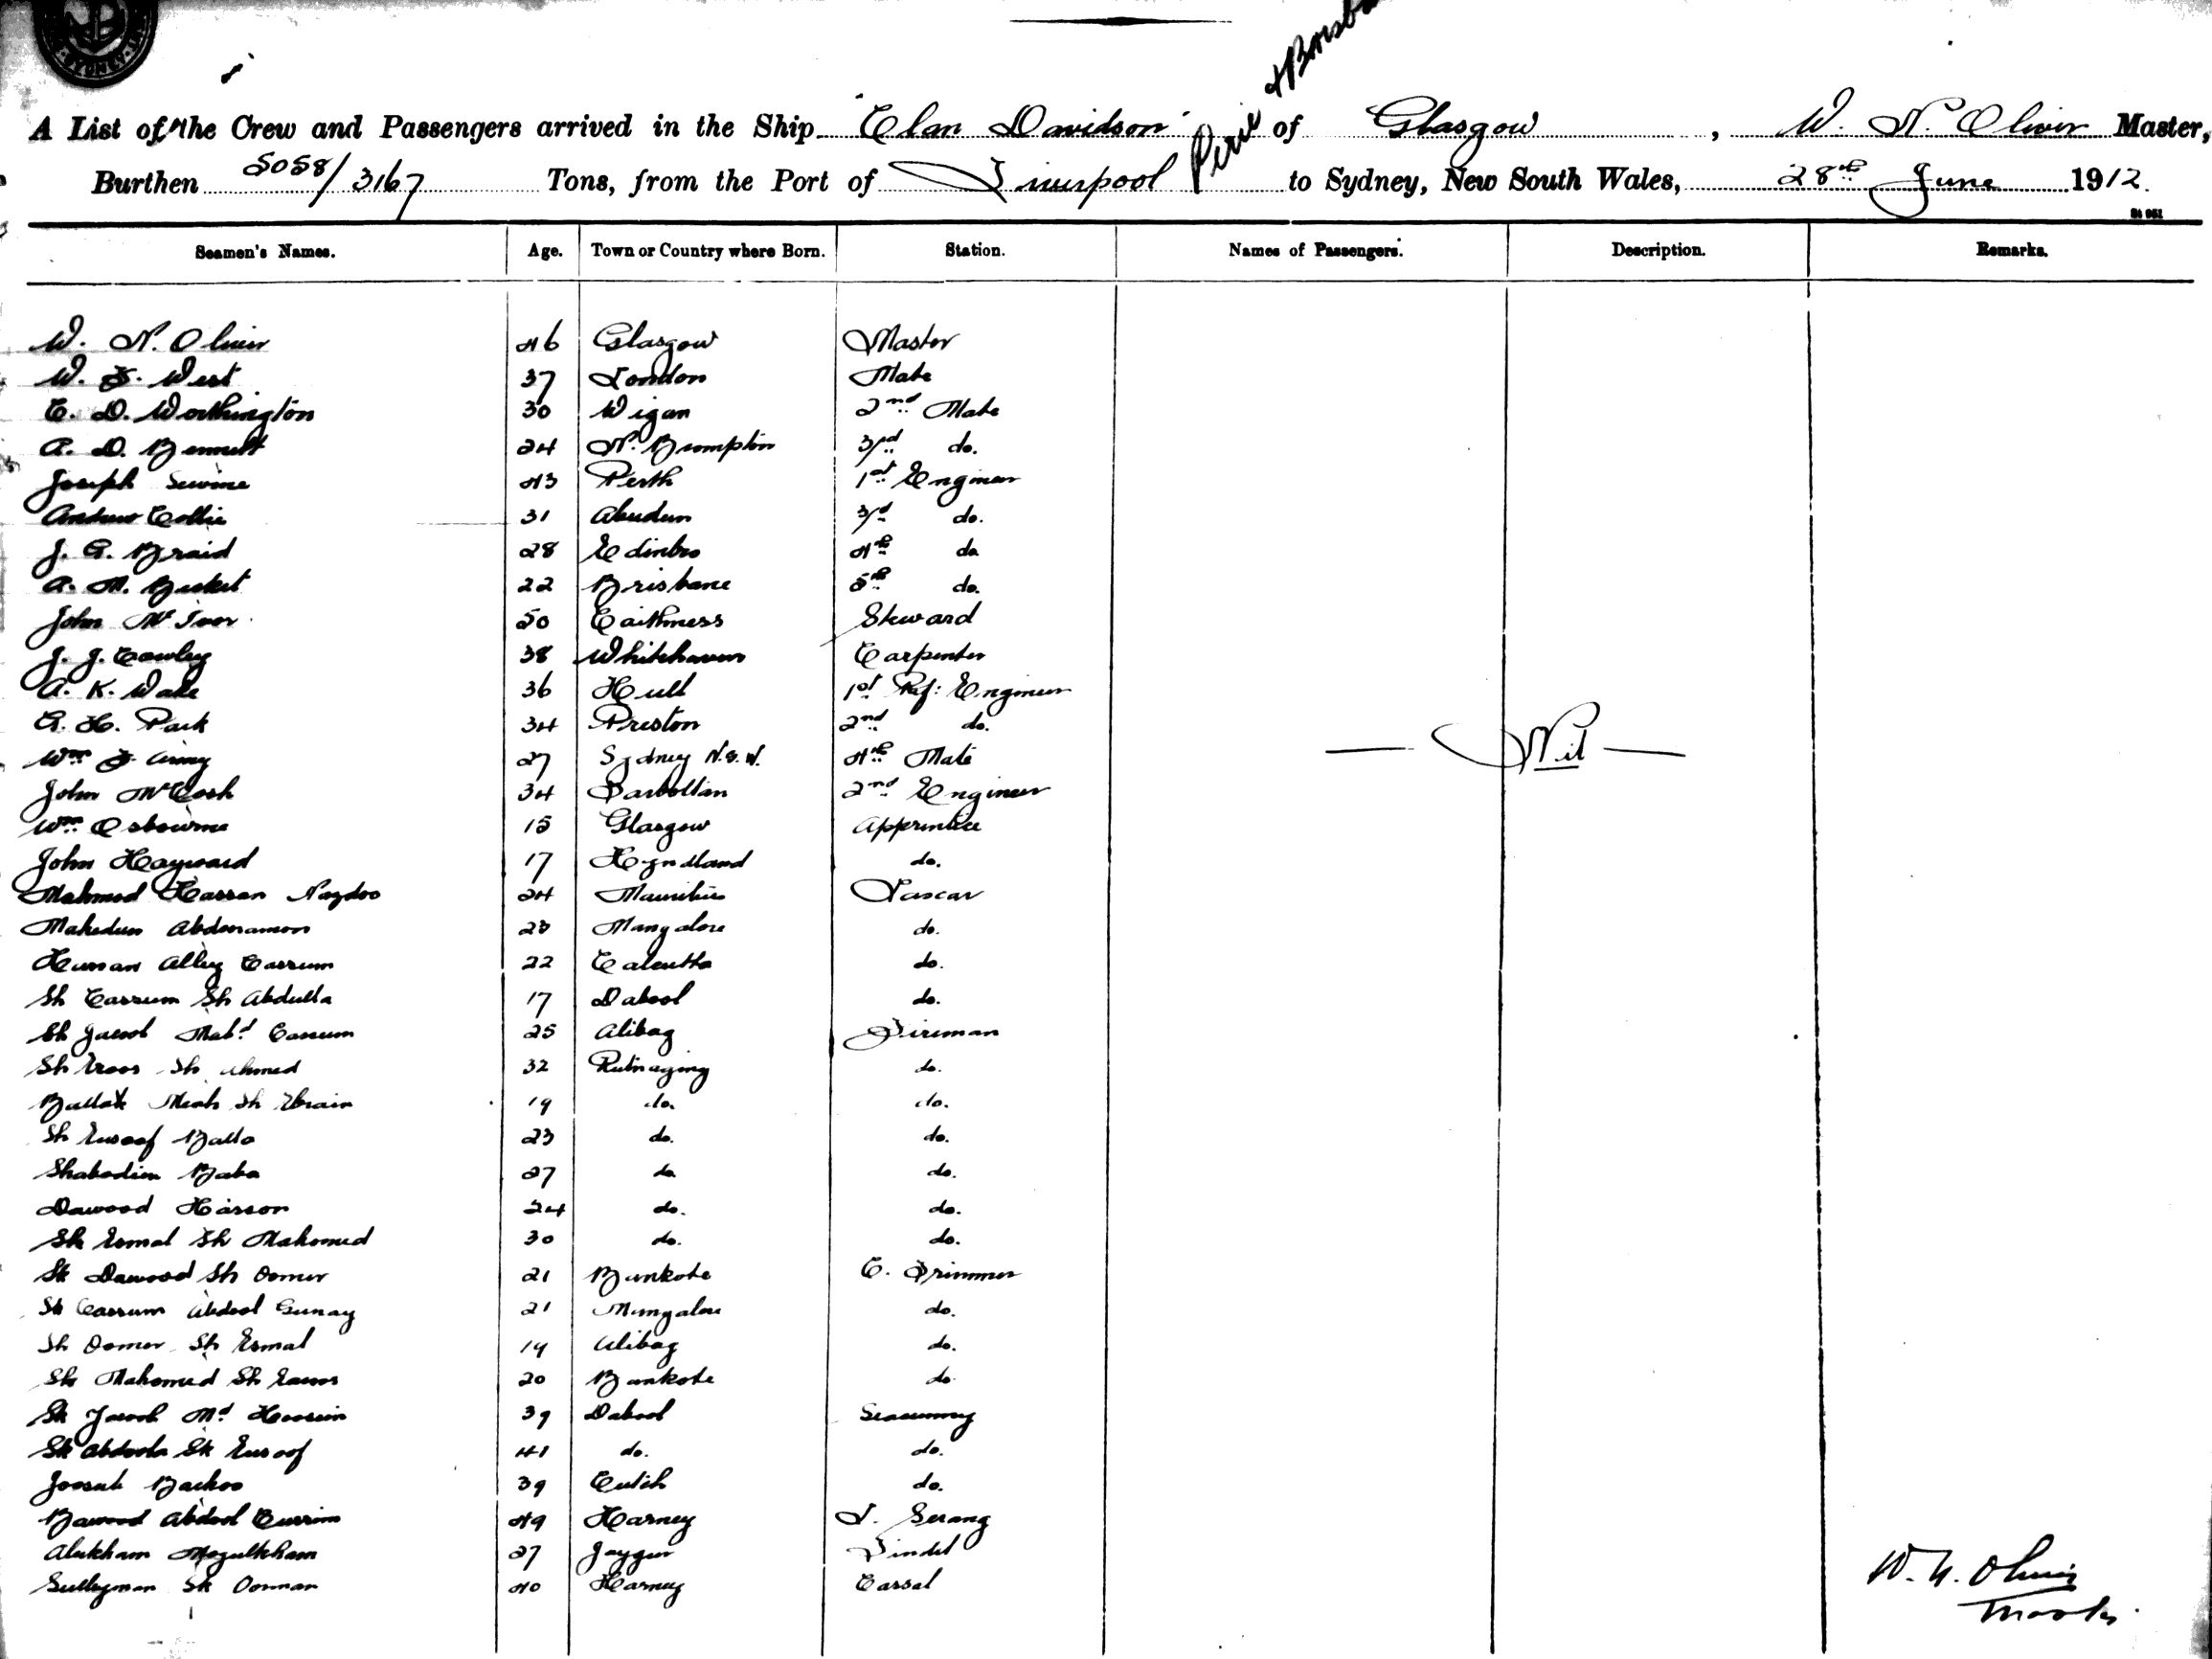 SYDNEY
& Brisba
A List of the Crew and Passengers arrived in the Ship "Clan Davidson" of Glasgow, W. N. Oliver Master,
Burthen 5058/3167 Tons, from the Port of Liverpool to Sydney, New South Wales, 28th June 1912.
Seamen's Names. Age. Town or Country where Born. Station. Names of Passengers. Description. Remarks.
W. N. Oliver 46 Glasgow Master
W. F. West 37 London Mate
C. D. Worthington 30 Wigan 2nd Mate
A. D. Bennett 24 N. Brompton 3rd do.
Joseph 43 Perth 1st Engineer
Andrew Collie 31 Aberdeen 3rd do.
J. G. Braid 28 Edinbro 4th do
A. M. Bicket 22 Brisbane 5th do.
John McIvor 50 Caithness Steward
J. J. Cowley 38 Whitehaven Carpenter
A. K. Wake 36 Hull 1st Ref: Engineer
G. H. Park 34 Preston 2nd do.
Wm F. 27 Sydney N.S.W. 4th Mate
— Nil —
John McCosh 34 Tarbolton 2nd Engineer
Wm Osbourne 15 Glasgow Apprentice
John Hayward 17 Hyndland do.
Mahmed Hassan Naydoo 24 Mauritius Lascar
Mahedeen Abdooramon 23 Mangalore do.
Hussan Alley Cassum 22 Calcutta do.
Sk Cassum Sk Abdulla 17 Dabool do.
Sk Jacoob Mahd. Cassum 25 Alibag Fireman
Sk Sk Ahmed 32 Rutnagiry do.
Sk Ebrain 19 do. do.
Sk Eusoof Balla 23 do. do.
Shabodin Baba 27 do do.
Dawood Hasson 24 do. do.
Sk Esmal Sk Mahomed 30 do. do.
Sk Dawood Sk Oomer 21 Bankote C. Trimmer
Sk Cassum Abdool Gunay 21 Mangalore do.
Sk Oomer Sk Esmal 19 Alibag do.
Sk Mahomed Sk 20 Bankote do
Sk Jacoob Md Hoosein 39 Dabool Seacunny
Sk Abdoola Sk Eusoof 41 do. do.
Joosub Backoo 39 Cutch do.
Bawood Abdool Currim 49 Harney D. Serang
Alukham Mogulkham 27 Jaygur Tindel
Sulleyman Sk Oosman 40 Harney Cassal
W. N. Oliver
Master